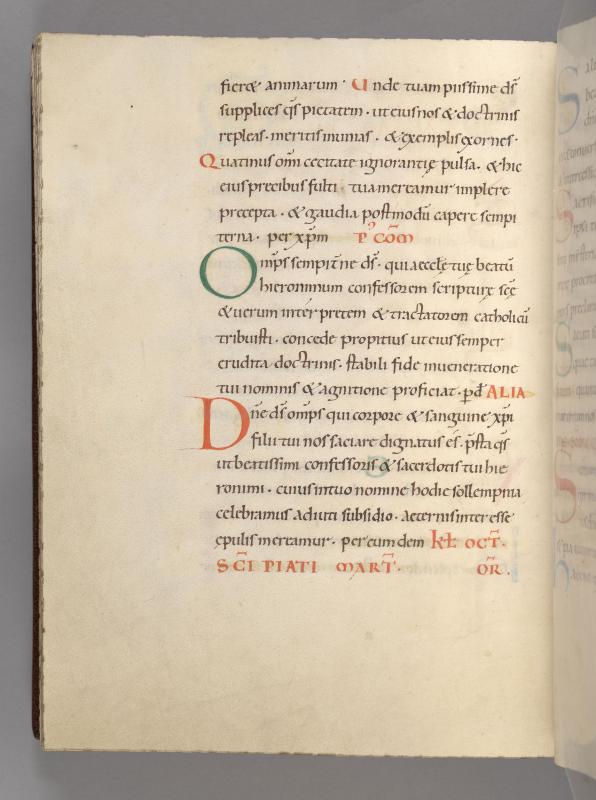 fieret animarum · Unde tuam piissime d̄s
supplices q̄s pietatem · ut eius nos & doctrinis
repleas · meritis munias · & exemplis exornes ·
Quatinus om̄i cecitate ignorantię pulsa · & hic
eius precibus fulti · tua mereamur implere
precepta · & gaudia postmodū capere sempi
terna · per xp̄m P' CŌM
Om̄ps sempit̄ne d̄s · qui aecclę tuę beatū
hieronimum confessorem scripturę sc̄ę
& uerum interpretem & tractatorem catholicū
tribuisti · concede propitius ut eius semper
erudita doctrinis · stabili fide in ueneratione
tui nominis & agnitione proficiat · p d̄ ALIA
Dn̄e d̄s om̄ps qui corpore & sanguine xp̄i
filii tui nos saciare dignatus es̄ · p̄sta q̄s
ut beatissimi confessoris & sacerdotis tui hie
ronimi · cuius in tuo nomine hodie sollempnia
celebramus adiuti subsidio · aeternis interesse
ępulis mereamur · per eumdem KL̄ OCT̄ ·
SC̄I PIATI MART̄ · OR̄ ·